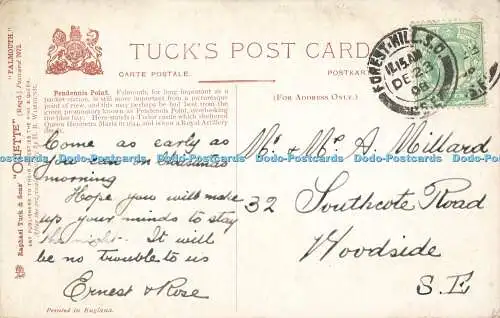 TUCK'S POST CARD
CARTE POSTALE.
POSTKARTE
(FOR ADDRESS ONLY.)
Pendennis Point. Falmouth, for long important as a
packet station, is still more important from a picturesque
point of view, and this may perhaps be best seen from the
promontory known as Pendennis Point, overlooking
the blue bay. Here stands a Tudor castle which sheltered
Queen Henrietta Maria in 1644, and is now a Royal Artillery
Come as early as
you can on Christmas
morning
Hope you will make
up your minds to stay
the night. It will
be no trouble to us
Ernest & Rose
Printed in England.
Mr & Mrs A Millard
32 Southcote Road
Woodside
S.E
FOREST-HILL. S.O
11.15 AM
DE 23
08
"FALMOUTH."
(Regd.) Postcard 7972.
Raphael Tuck & Sons' "OILETTE"
ART PUBLISHERS TO THEIR MAJESTIES THE KING & QUEEN.
Dodo-Postcards Dodo-Postcards Dodo-Postcards Dodo-Postcards Dodo-Postcards